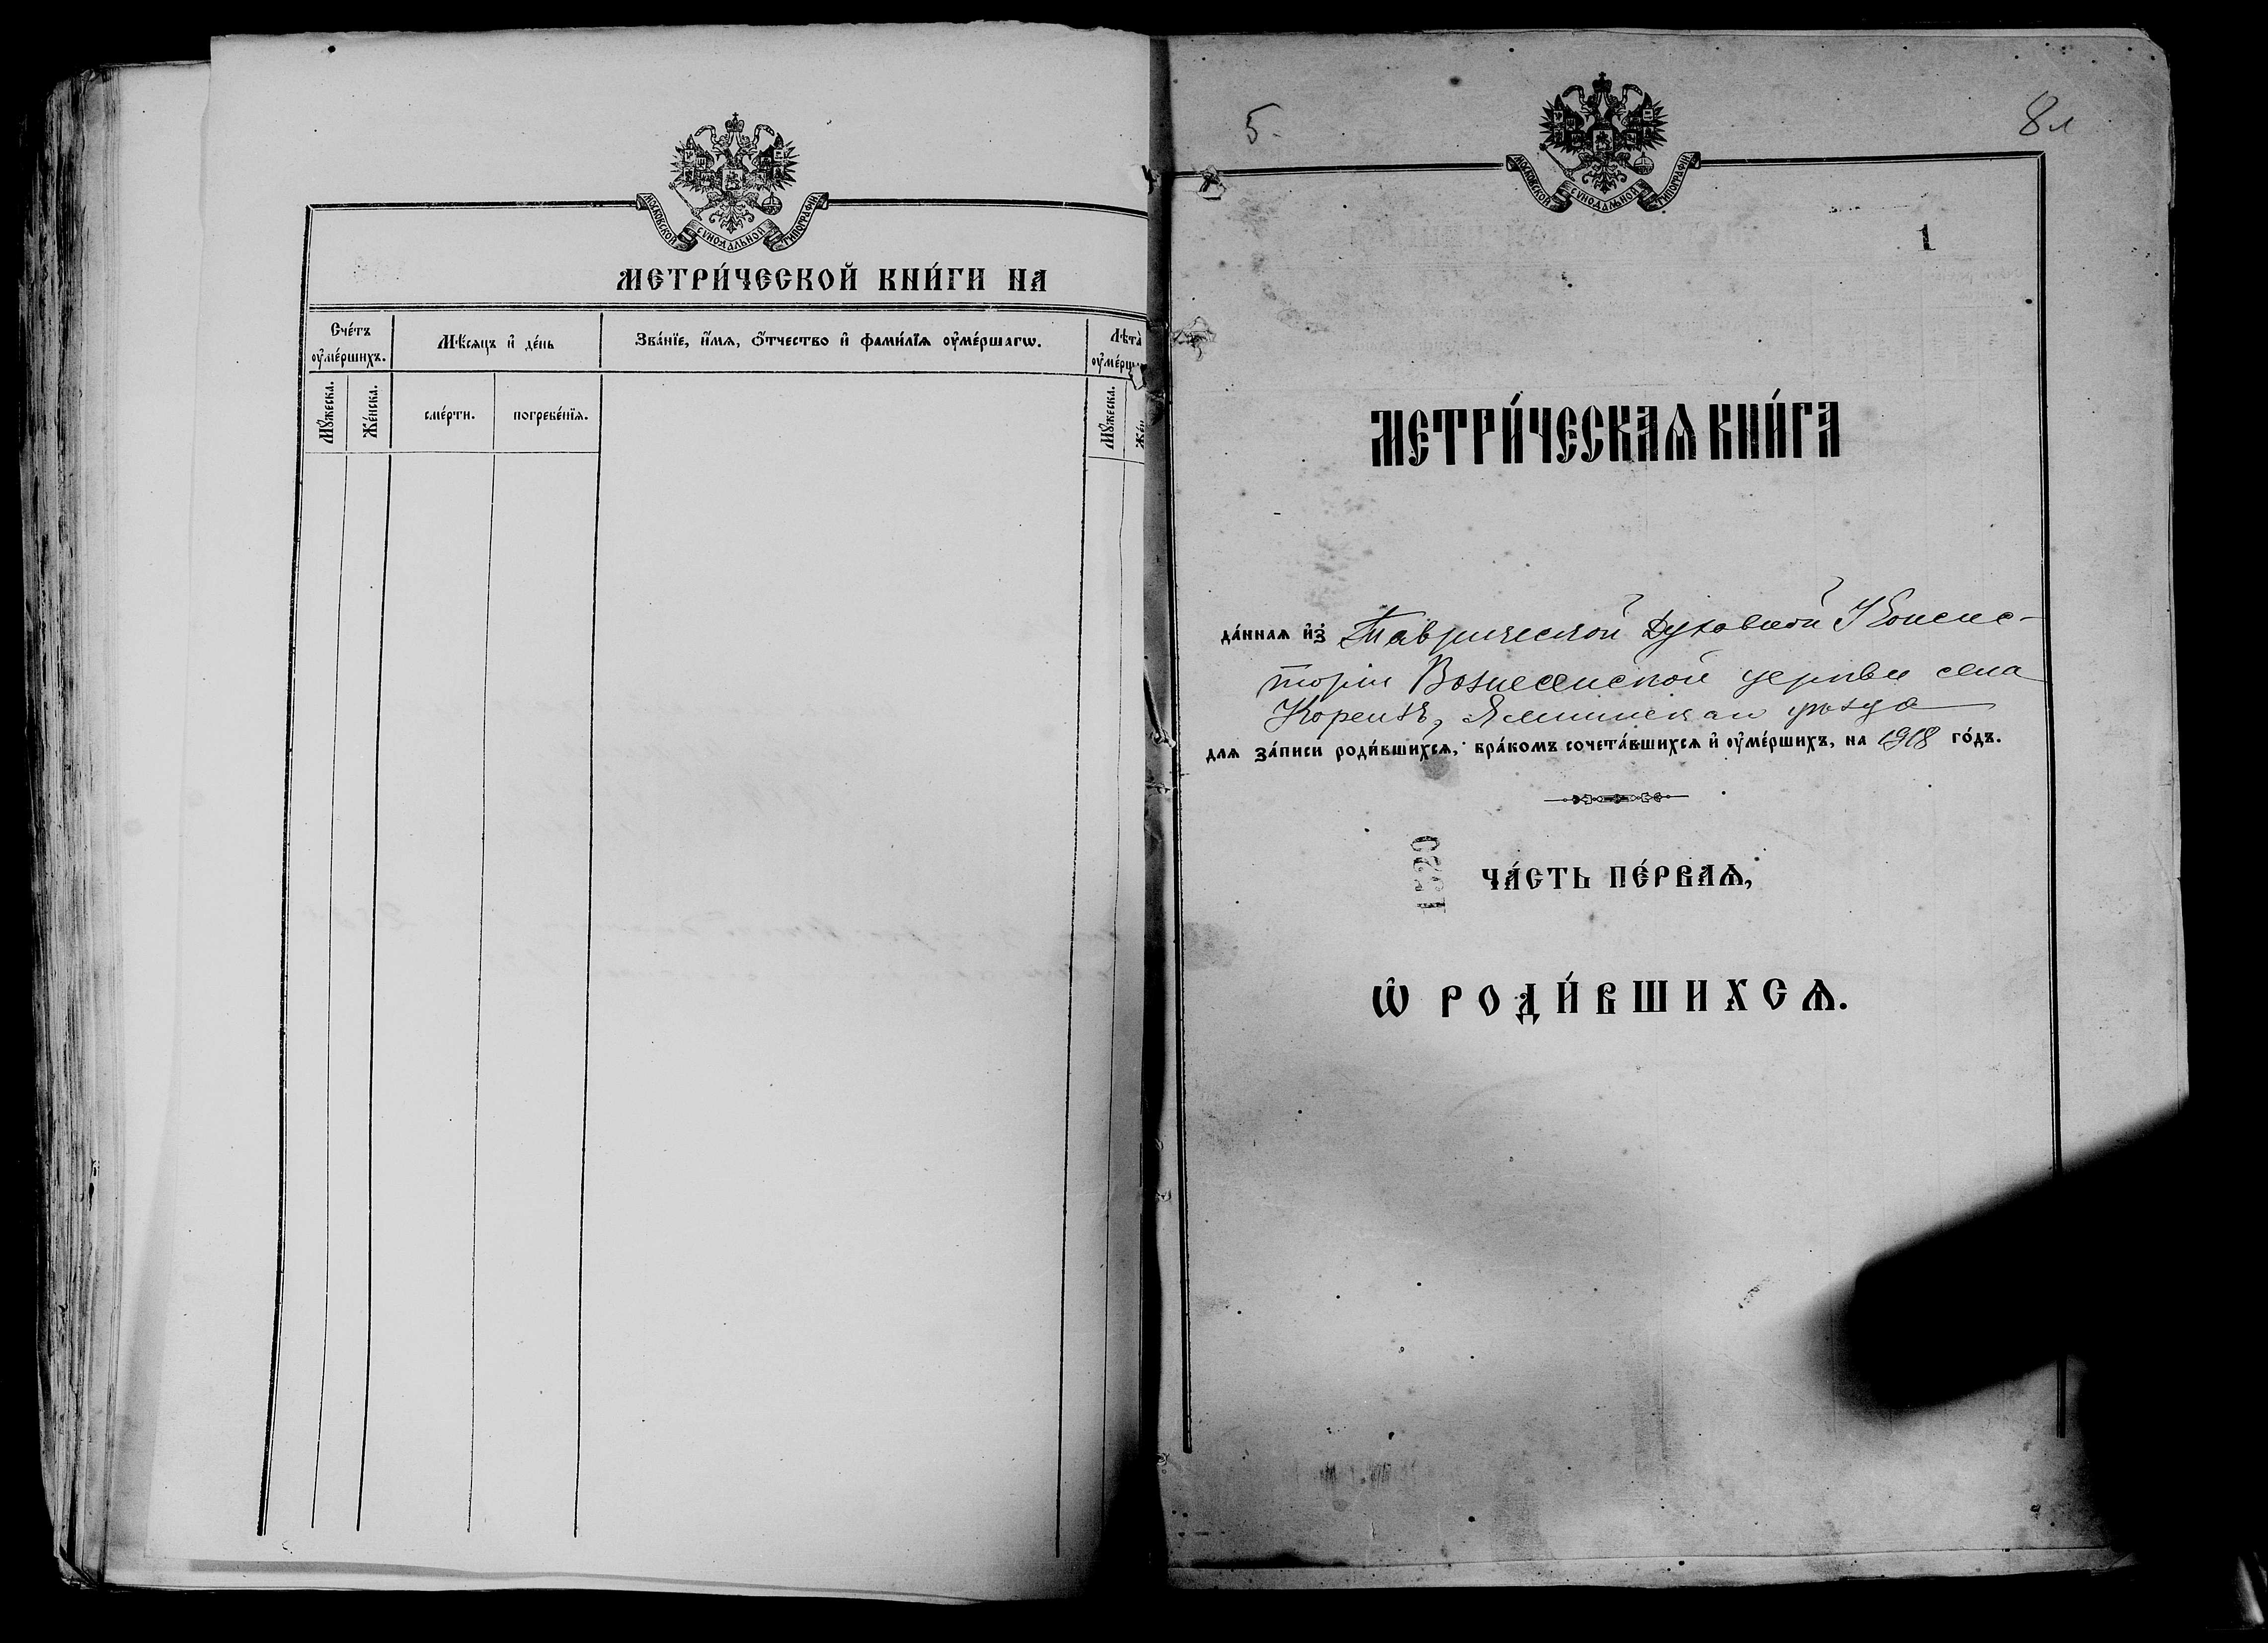 МОСКОВСКОЙ СѴНОДАЛЬНОЙ ТИПОГРАФІИ
МЕТРИ́ЧЕСКОЙ КНИ́ГИ НА
Сче́тъ оу҆ме́ршихъ.
Мѣ́сяцъ и҆ де́нь
Зва́нїе, и҆́мѧ, ѻ҆́тчество и҆ фами́лїѧ оу҆ме́ршагѡ.
Лѣта̀
Мꙋ́жеска.
Же́нска.
сме́рти.
погребе́нїѧ.
Мꙋ́жеска.
5.
8 л
МОСКОВСКОЙ СѴНОДАЛЬНОЙ ТИПОГРАФІИ
1
МЕТРИ́ЧЕСКАѦ КНИ́ГА
да́ннаѧ и҆з̾ Таврической Духовной Консис-
торіи Вознесенской церкви села
Коренѣ, уѣзда
длѧ за́писи роди́вшихсѧ, бра́комъ сочета́вшихсѧ и҆ оу҆ме́ршихъ, на 1918 го́дъ.
1520
ЧА́СТЬ ПЕ́РВАѦ,
Ѡ҆ РОДИ́ВШИХСѦ.